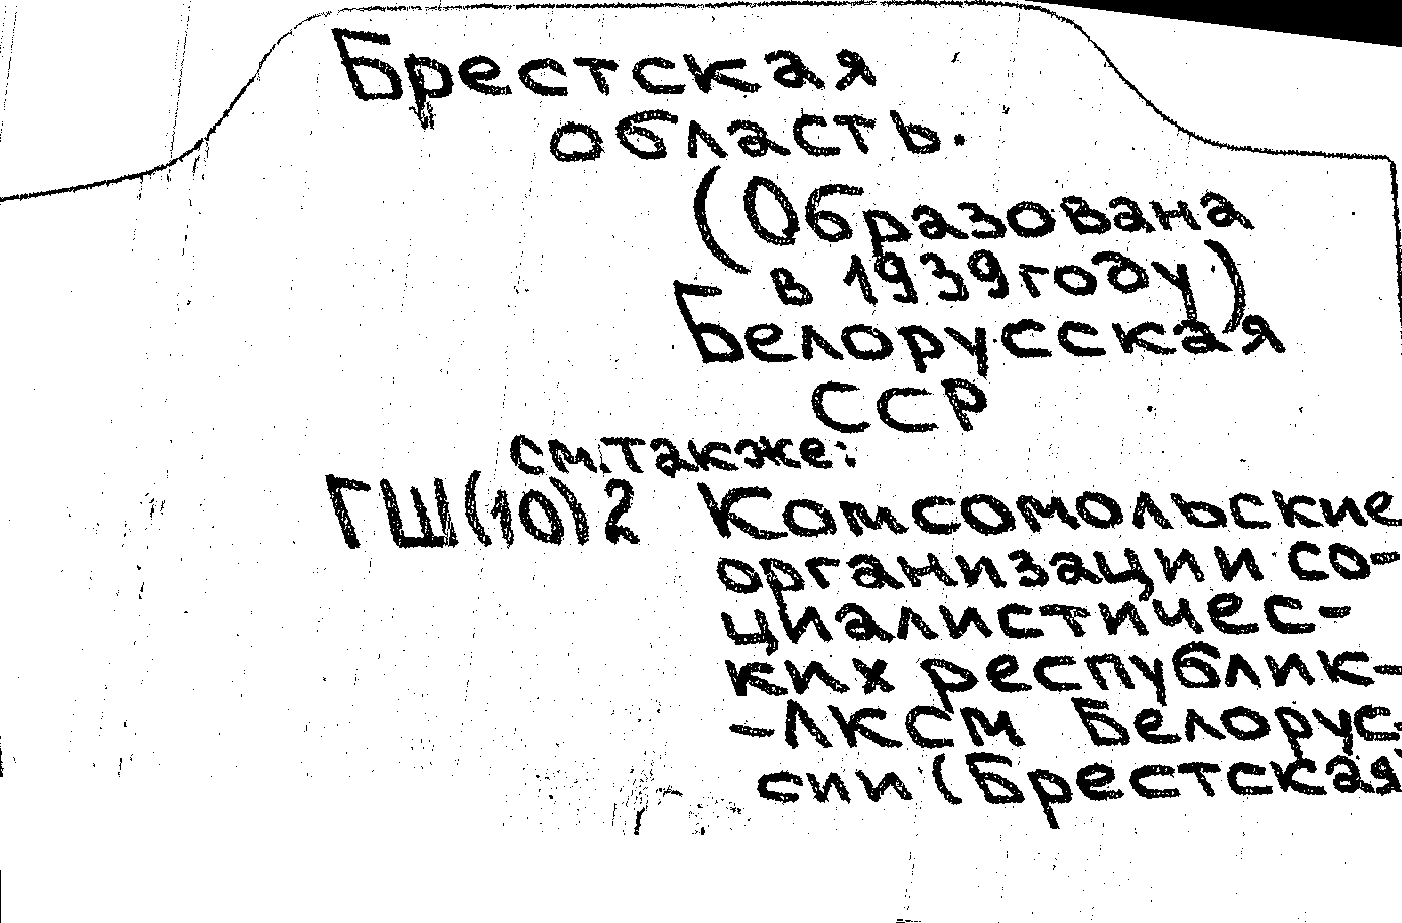 Брестская
область.
(Образована
в 1939 году)
Белорусская
ССР
см. также:
ГШ(10)2 Комсомольские
организации со-
циалистичес-
ких республик-
-ЛКСМ Белорус-
сии (Брестская)